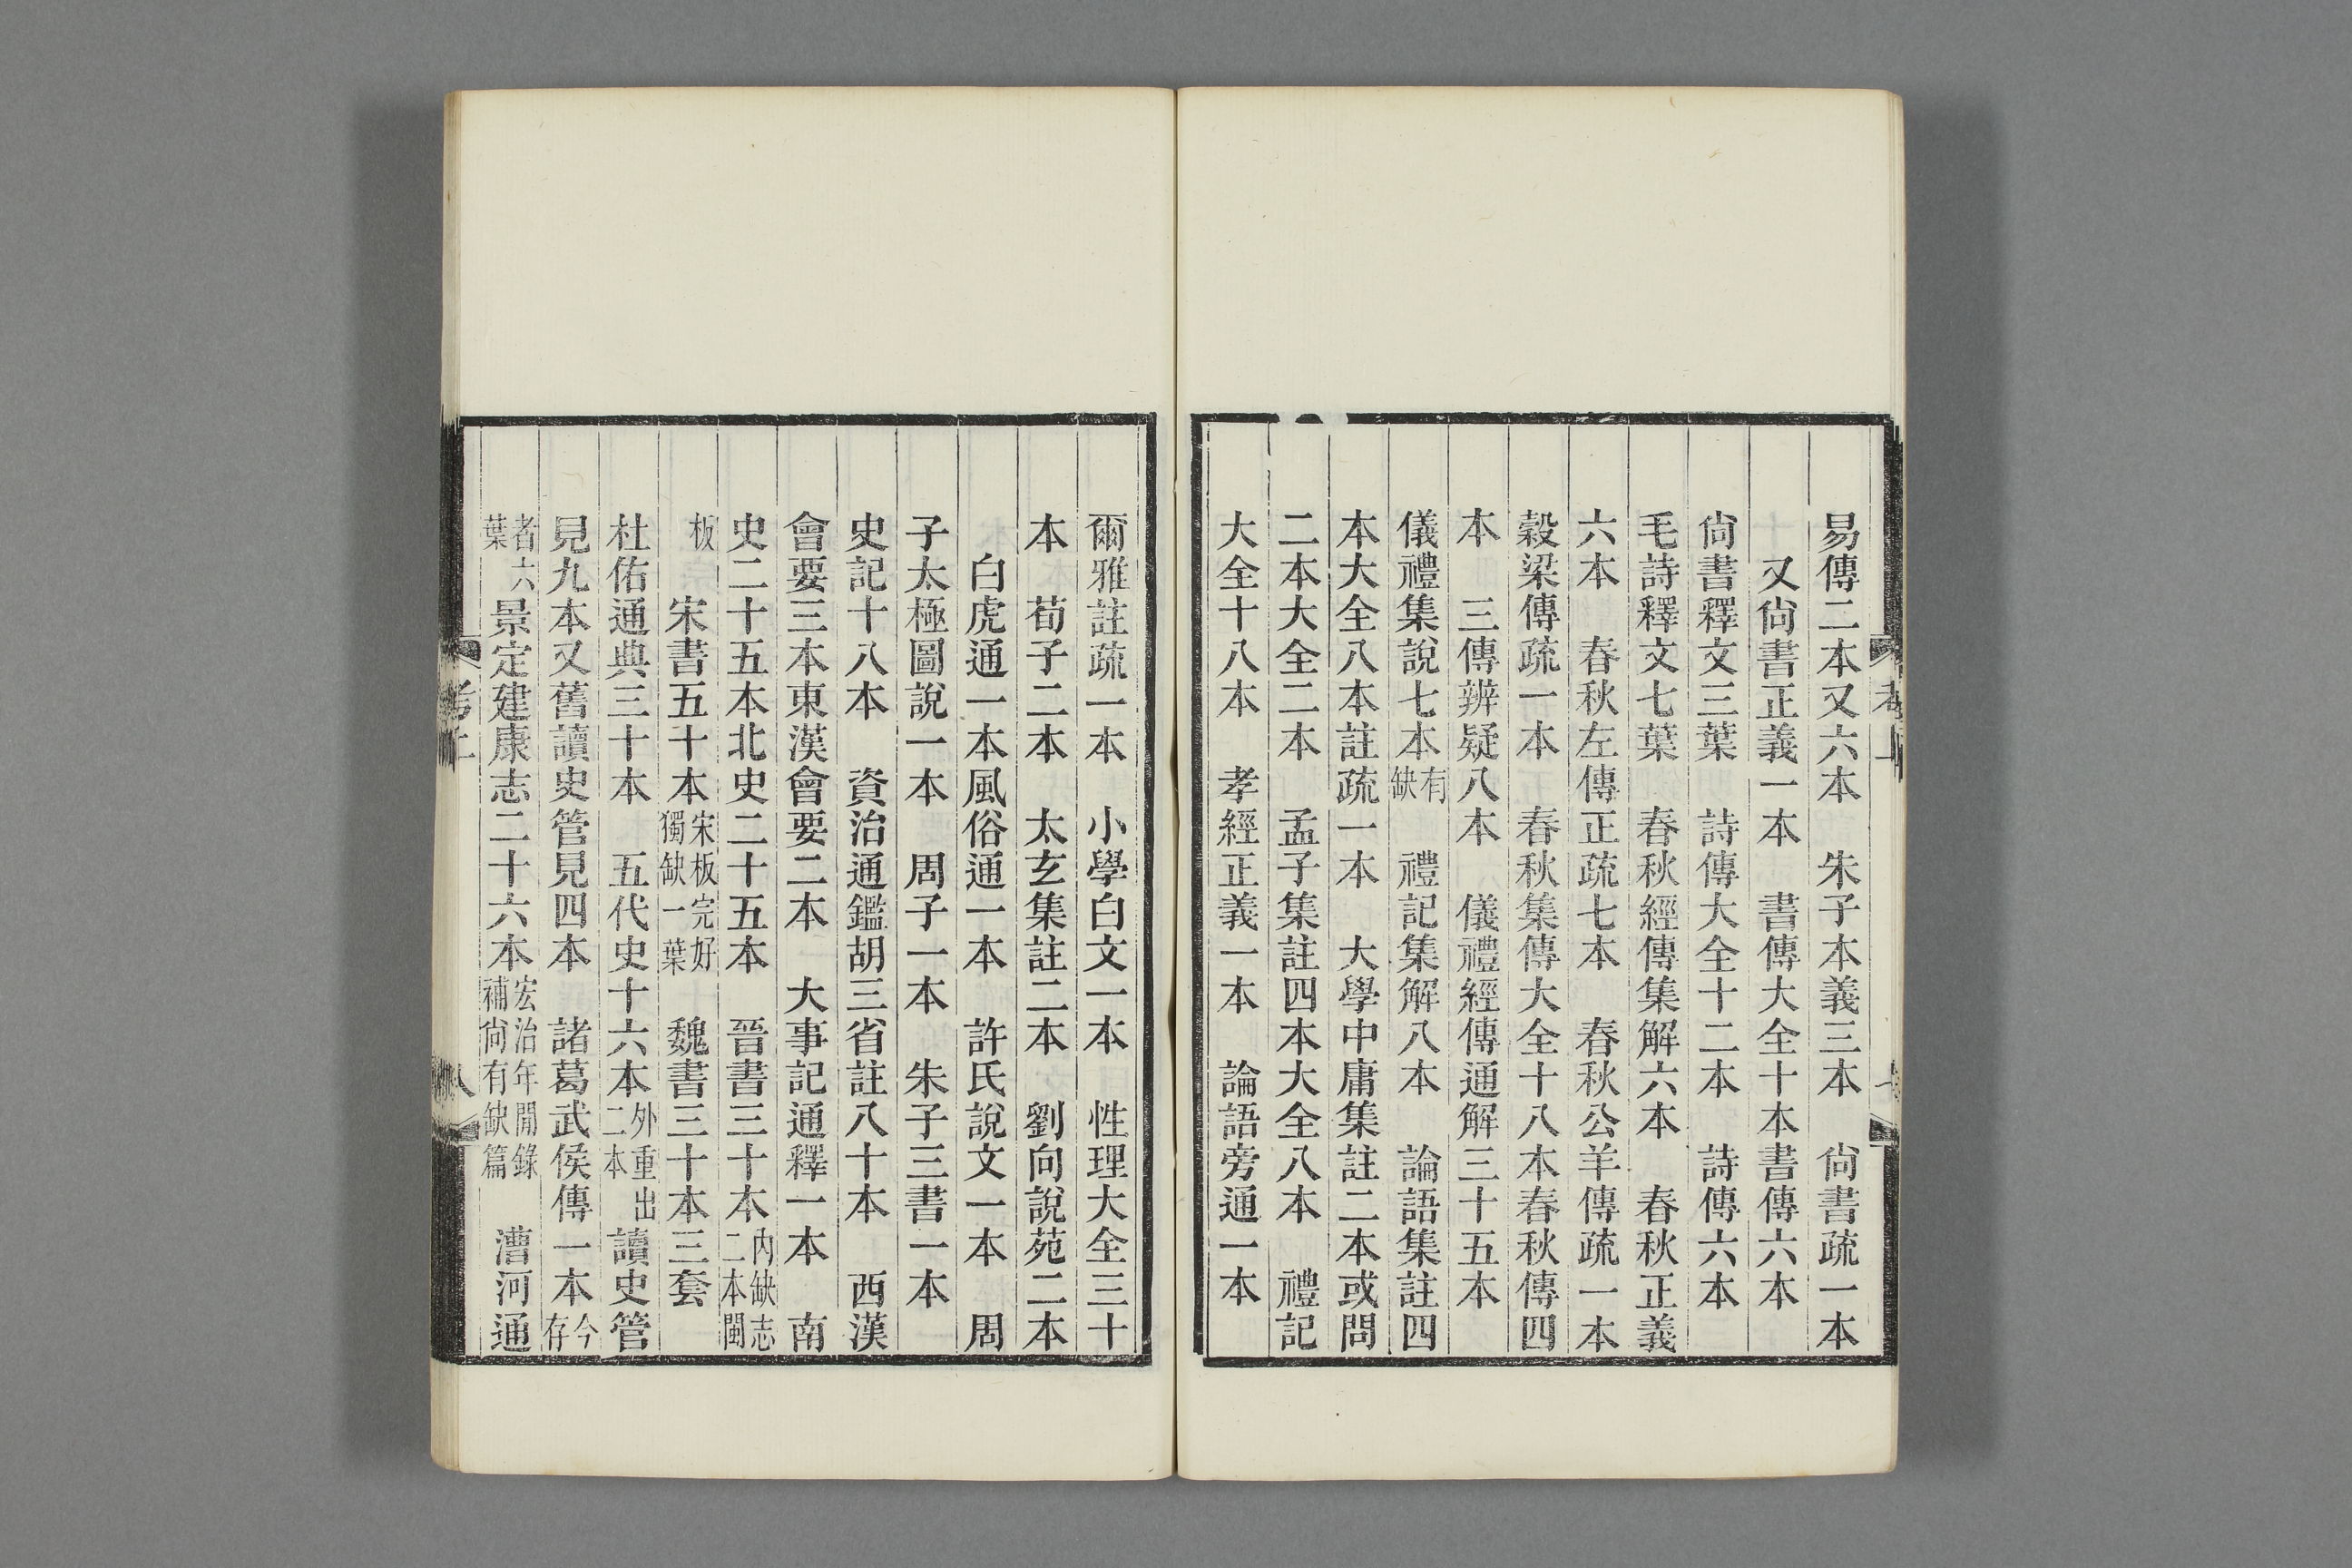 易傳二本又六本　朱子本義三本　尙書疏一本
又尙書正義一本　書傳大全十本書傳六本
尙書釋文三葉　詩傳大全十二本　詩傳六本
毛詩釋文七葉　春秋經傳集解六本　春秋正義
六本　春秋左傳正疏七本　春秋公羊傳疏一本
穀梁傳疏一本　春秋集傳大全十八本春秋傳四
本　三傳辨疑八本　儀禮經傳通解三十五本
儀禮集說七本有缺　禮記集解八本　論語集註四
本大全八本註疏一本　大學中庸集註二本或問
二本大全二本　孟子集註四本大全八本　禮記
大全十八本　孝經正義一本　論語旁通一本
爾雅註疏一本　小學白文一本　性理大全三十
本　荀子二本　太玄集註二本　劉向說苑二本
白虎通一本風俗通一本　許氏說文一本　周
子太極圖說一本　周子一本　朱子三書一本
史記十八本　資治通鑑胡三省註八十本　西漢
會要三本東漢會要二本　大事記通釋一本　南
史二十五本北史二十五本　晉書三十本內缺志二本閩
板　宋書五十本宋板完好獨缺一葉　魏書三十本三套
杜佑通典三十本　五代史十六本外重出二本讀史管
見九本又舊讀史管見四本　諸葛武侯傳一本今存
者六葉景定建康志二十六本宏治年閒錄補尙有缺篇　漕河通
考上
八